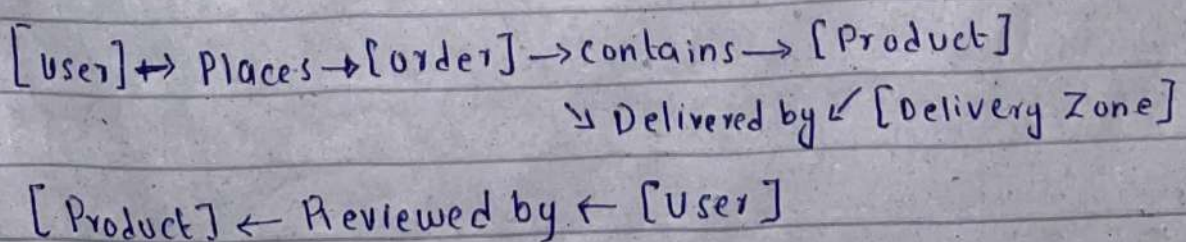 [User] ↔ Places → [order] → contains → [Product]
↘ Delivered by ↙ [Delivery Zone]
[Product] ← Reviewed by ← [User]